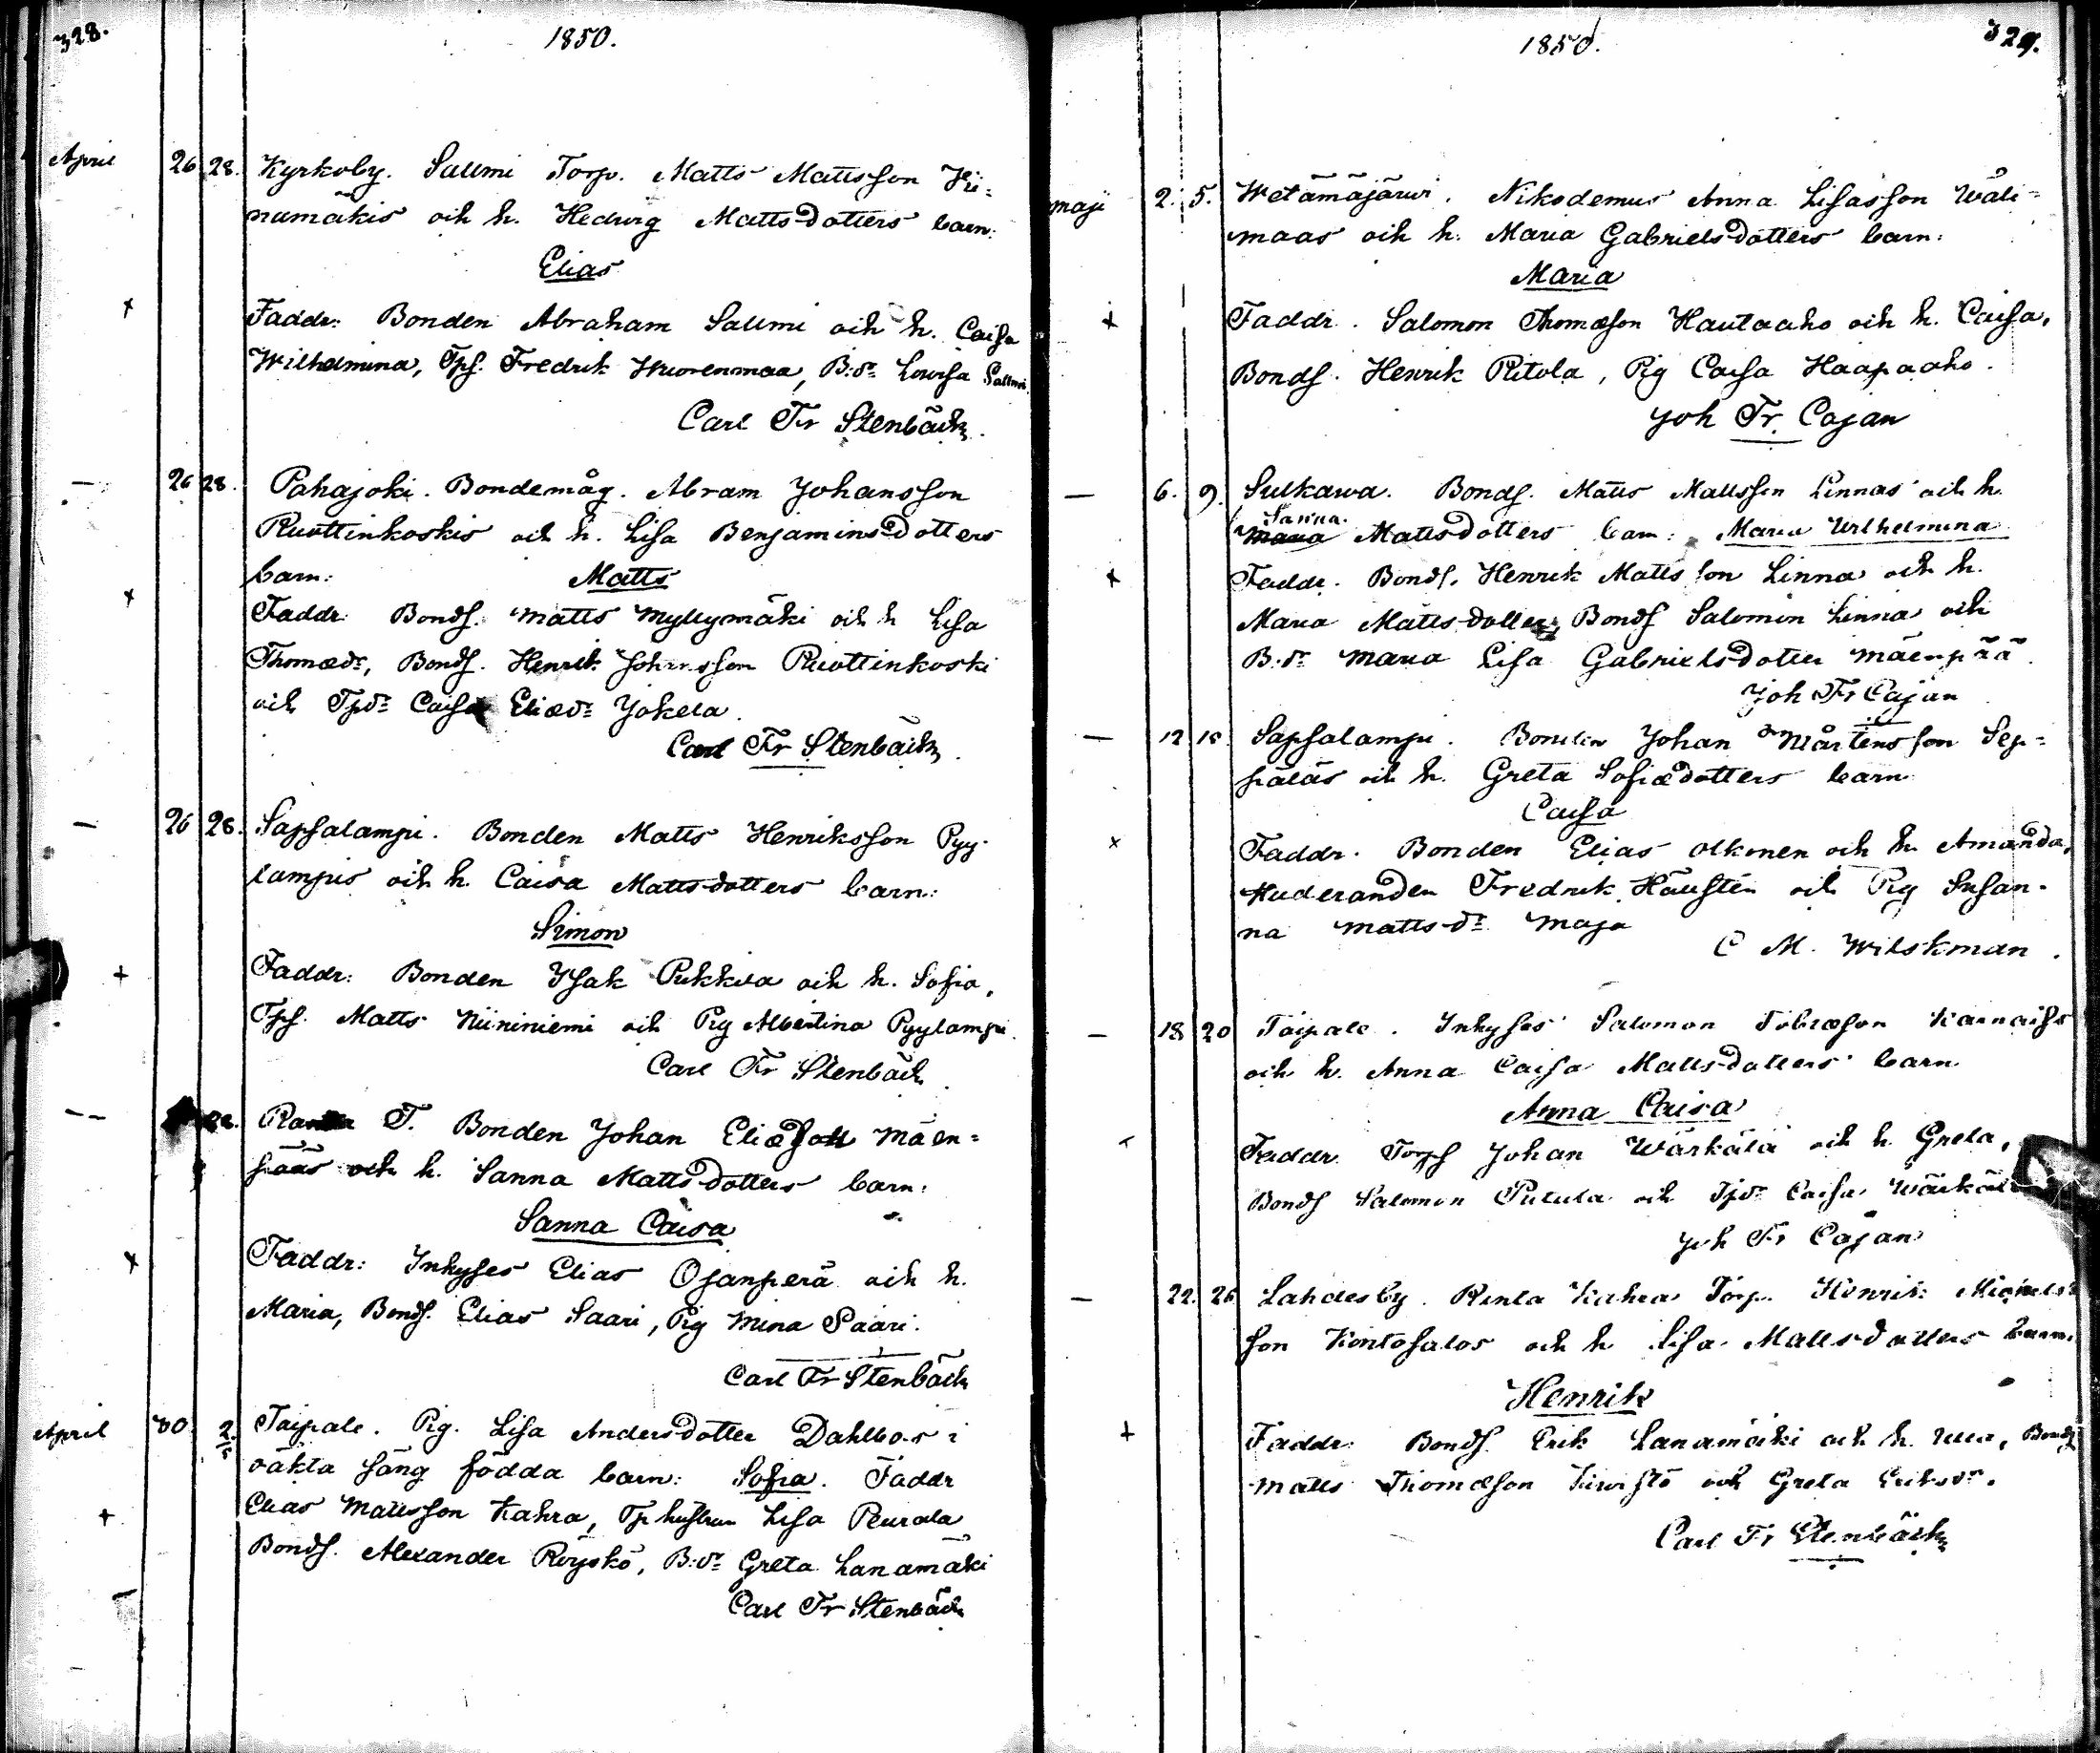 328.
1850.
April 26 28. Kyrkoby. Sallmi Torp. Matts Mattsson
numäkis och h. Hedvig Mattsdotters barn:
Elias
+ Faddr: Bonden Abraham Sallmi och h. Caisa
Wilhelmina, Tps. Fredrik Wuorenmaa, B:dr Lovisa Sallmi
Carl Fr Stenbäck.
— 26 28. Pahajoki. Bondemåg. Abram Johansson
Ruottinkoskis och h. Lisa Benjaminsdotters
barn: Matts
+ Faddr: Bonds. Matts Myllymäki och h Lisa
Thomædr, Bonds. Henrik Johansson Ruottinkoski
och Tpdr Caisa Eliædr Jokela.
Carl Fr Stenbäck.
— 26 28. Sapsalampi. Bonden Matts Henriksson Pyy-
lampis och h. Caisa Mattsdotters barn:
Simon
+ Faddr: Bonden Isak Pukkila och h. Sofia,
Tps. Matts Niininiemi och Pig Albertina Pyylampi.
Carl Fr Stenbäck
— Ranta T. Bonden Johan Eliæson Mäen=
pääs och h. Sanna Mattsdotters barn:
Sanna Caisa
+ Faddr: Inhyses Elias Ojanperä och h.
Maria, Bonds. Elias Saari, Pig Mina Saari.
Carl Fr Stenbäck
April 30 2/5 Taipale. Pig. Lisa Andersdotter Dahlbos i
oäkta säng födda barn: Sofia. Faddr
+ Elias Mattsson Kahra, Tp hustrun Lisa Peurala
Bonds. Alexander Röyskö, B:dr Greta Lanamäki
Carl Fr Stenbäck
1850.
329.
maji 2. 5. Wetämäjärwi. Nikodemus Anna Lisasson Wäli=
maas och h. Maria Gabrielsdotters barn:
Maria
+ Faddr. Salomon Thomæson Hautaaho och h. Caisa,
Bonds. Henrik Ritola, Pig Caisa Haapaaho.
Joh Fr. Cajan
— 6. 9. Sulkawa. Bonds. Matts Mattsson Linnas och h.
Sanna
Maria Mattsdotters barn: Maria Wilhelmina
+ Faddr. Bonds. Henrik Mattsson Linna och h.
Maria Mattsdotter, Bonds Salomon Linna och
B:dr Maria Lisa Gabrielsdotter Mäenpää.
Joh Fr Cajan
— 12 Sapsalampi. Bonden Johan Mårtensson Sep=
päläs och h. Greta Sofiædotters barn
Caisa
x Faddr. Bonden Elias Olkonen och h. Amanda,
Studeranden Fredrik Häusten och Pig Susan-
na Mattsdr Maja
C M. Wilskman.
— 18 20 Taipale. Inhyses Salomon Tobiæson
och h. Anna Caisa Mattsdotters barn
Anna Caisa
Faddr. Torps Johan Wärkälä och h. Greta,
Bonds Salomon och Tpdr Caisa
Joh Fr Cajan
— 22. 26 Lahdesby. Rinta Kahra Torp. Henrik Michels
son Kontosalos och h Lisa Mattsdotters barn.
Henrik
+ Faddr: Bonds. Erik Lanamäki och h. Ulla, Bonds
Matts Thomæson och Greta Eriksdr.
Carl Fr Stenbäck